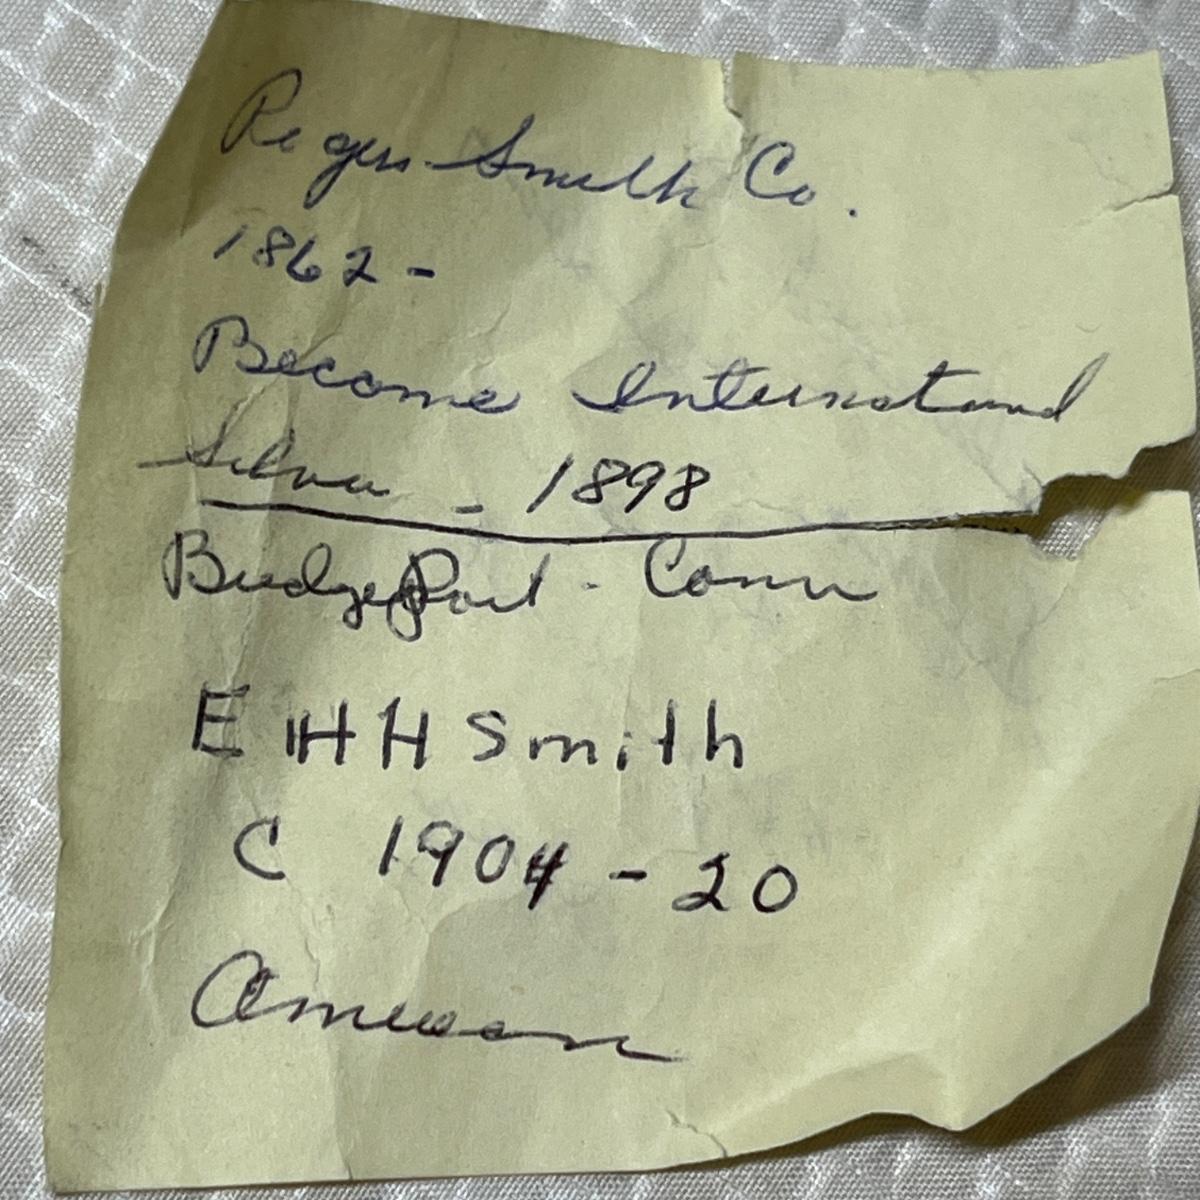 Rogers Smith Co.
1862 -
Become International
Silver - 1898
BridgePort - Conn
E H H Smith
C 1904 - 20
American